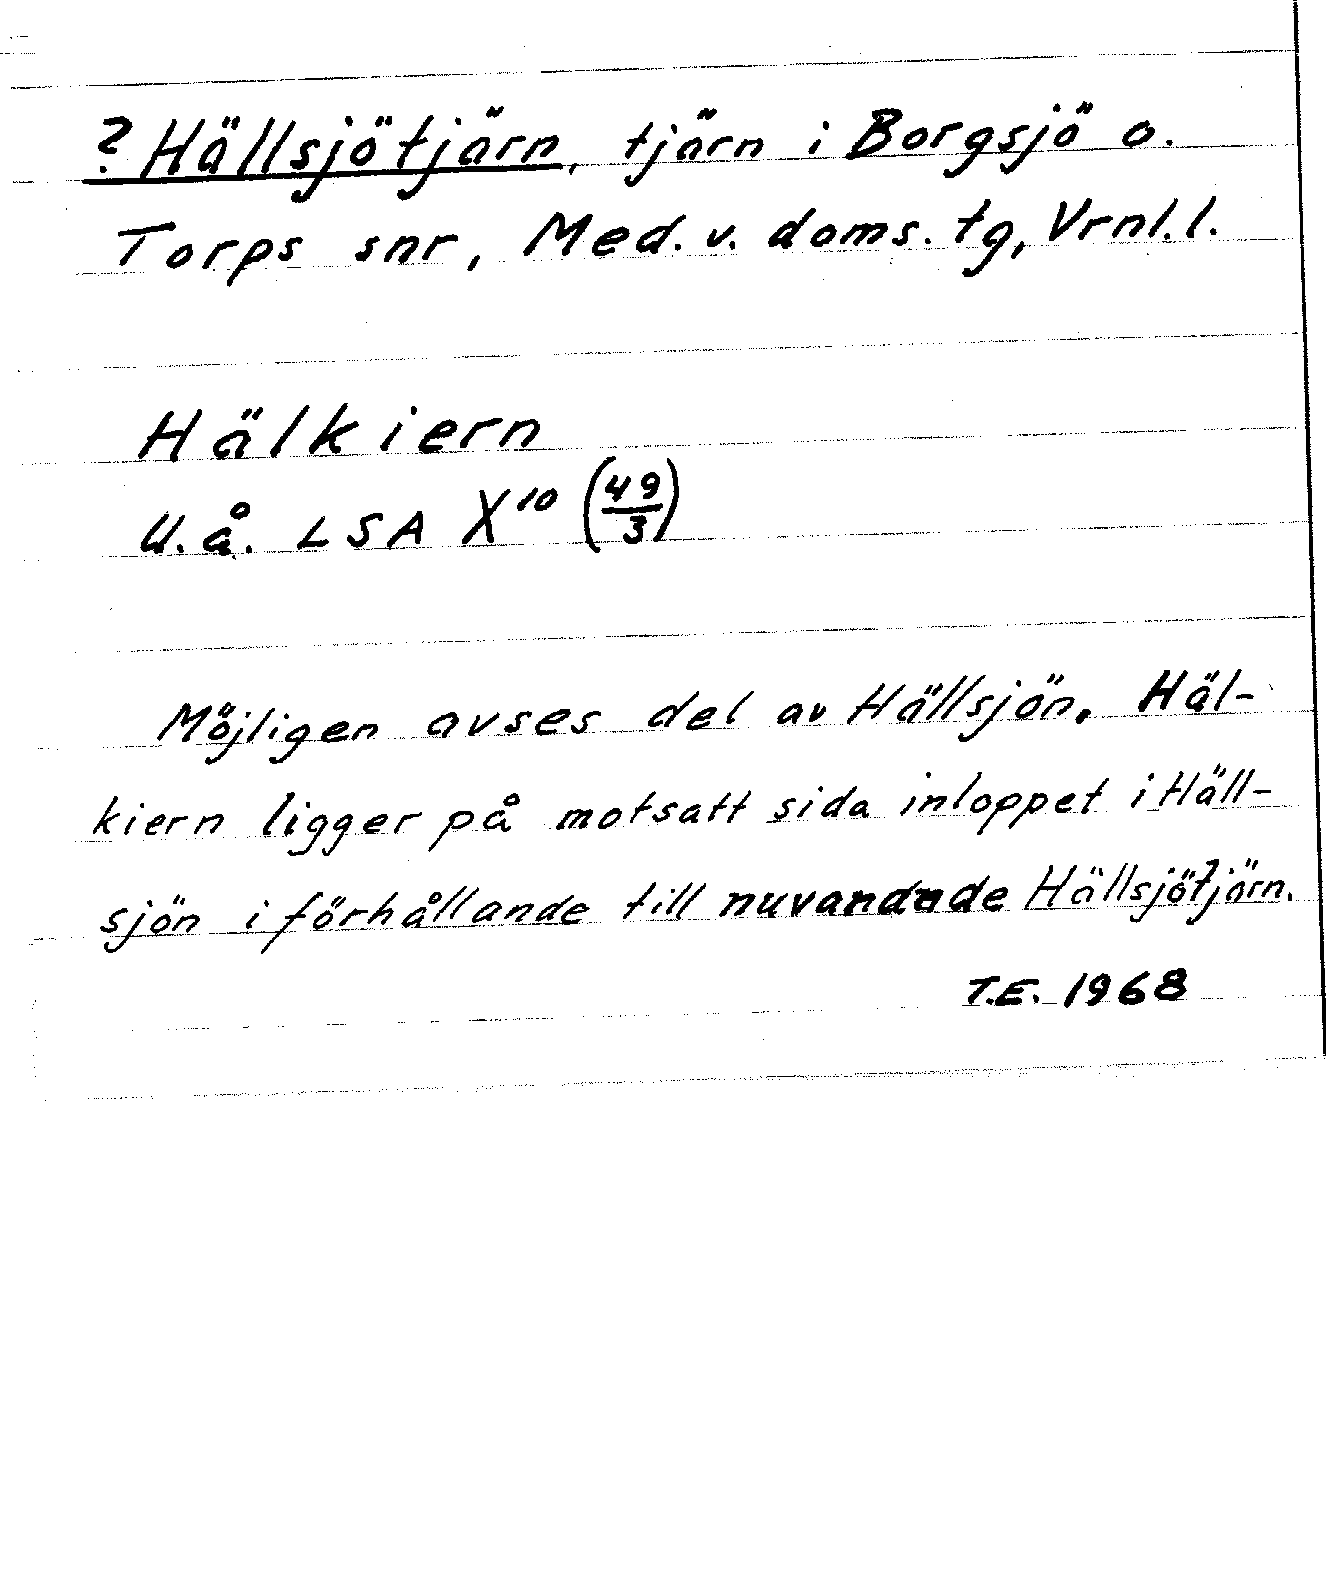 ? Hällsjötjärn, tjärn i Borgsjö o.
Torps snr, Med. v. doms. tg, Vrnl. l.
Hälkiern
U.å. LSA X¹⁰ (49/3)
Möjligen avses del av Hällsjön. Häl-
kiern ligger på motsatt sida inloppet i Häll-
sjön i förhållande till nuvarande Hällsjötjärn.
T.E. 1968